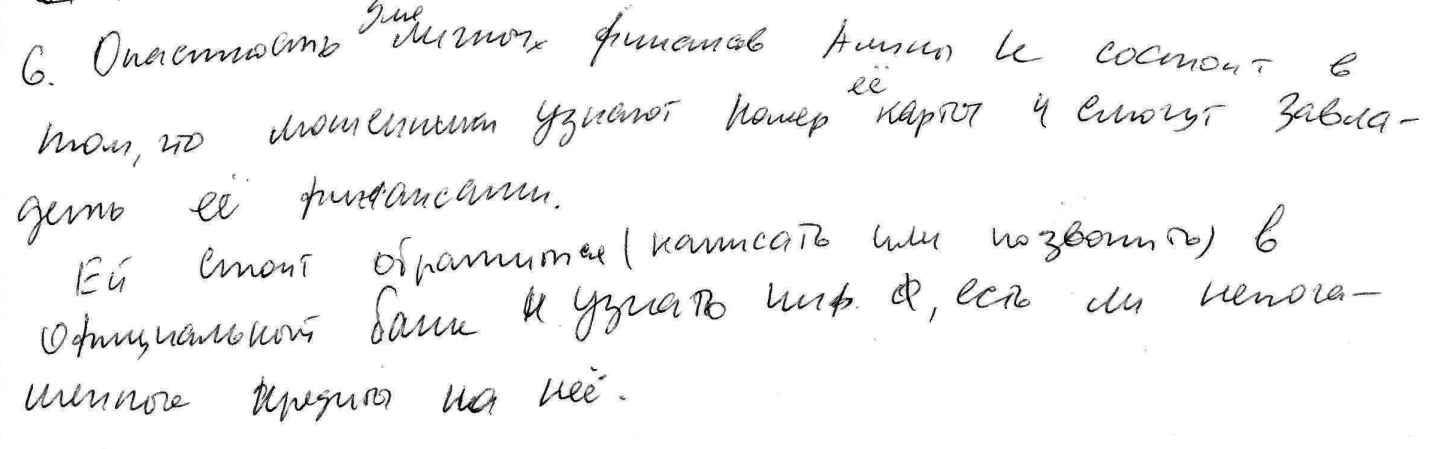 6. Опастность для личных финансов Алины К состоит в
том, что мошенники узнают номер её карты и смогут завла-
деть её финансами.
Ей стоит обратится (написать или позвонить) в
официальный банк и узнать инф. , есть ли непога-
шенные кредиты на неё.